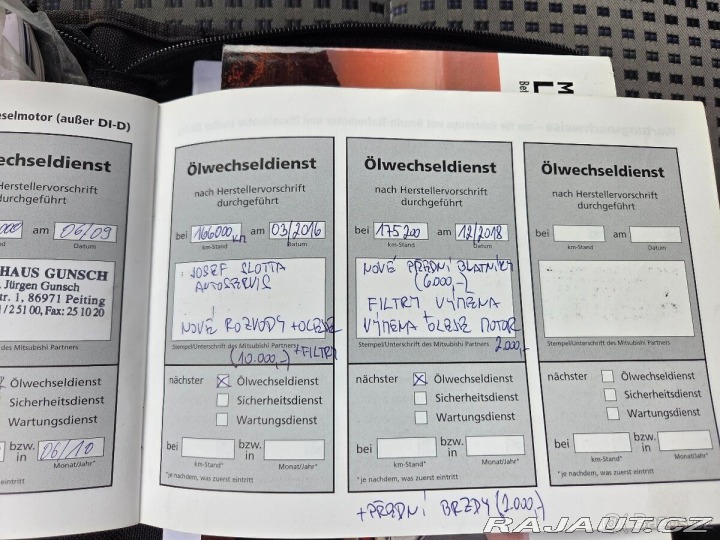 M
L
Bei
eselmotor (außer DI-D)
echseldienst
Herstellervorschrift
durchgeführt
000 am 06/09
Stand Datum
HAUS GUNSCH
. Jürgen Gunsch
str. 1, 86971 Peiting
/ 2 51 00, Fax: 25 10 20
des Mitsubishi Partners
Ölwechseldienst
Sicherheitsdienst
Wartungsdienst
bzw. in 06/10
Monat/Jahr*
was zuerst eintritt
Ölwechseldienst
nach Herstellervorschrift
durchgeführt
bei 166000 km am 03/2016
km-Stand Datum
JOSEF SLOTTA
AUTOSERVIS
NOVÉ ROZVODY + OLEJE
Stempel/Unterschrift des Mitsubishi Partners
(10.000,-) + FILTRY
nächster Ölwechseldienst
Sicherheitsdienst
Wartungsdienst
bei bzw. in
km-Stand* Monat/Jahr*
*je nachdem, was zuerst eintritt
Ölwechseldienst
nach Herstellervorschrift
durchgeführt
bei 175200 am 12/2018
km-Stand Datum
NOVÉ PŘEDNÍ BLATNÍKY
(6000,-)
FILTRY VÝMĚNA
+
VÝMĚNA OLEJE MOTOR
Stempel/Unterschrift des Mitsubishi Partners 2.000,-
nächster Ölwechseldienst
Sicherheitsdienst
Wartungsdienst
bei bzw. in
km-Stand* Monat/Jahr*
*je nachdem, was zuerst eintritt
+ PŘEDNÍ BRZDY (2.000,-)
Ölwechseldienst
nach Herstellervorschrift
durchgeführt
bei am
km-Stand Datum
Stempel/Unterschrift des Mitsubishi Partners
nächster Ölwechseldienst
Sicherheitsdienst
Wartungsdienst
bei bzw. in
km-Stand* Monat/Jahr*
*je nachdem, was zuerst eintritt
RAJAUT.CZ